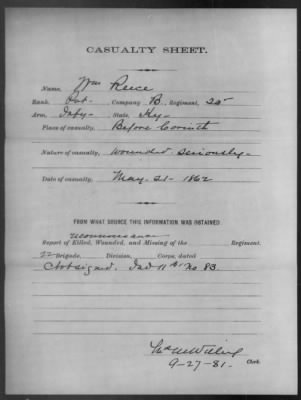 CASUALTY SHEET.
Name, Wm Reece
Rank, Pvt- Company B, Regiment, 25
Arm, Infy- State, Ky-
Place of casualty, Before Corinth
Nature of casualty, wounded seriously-
Date of casualty, May- 21- 1862
FROM WHAT SOURCE THIS INFORMATION WAS OBTAINED.
reconnoissance
Report of Killed, Wounded, and Missing of the Regiment.
22 Brigade, Division, Corps, dated
not signed. No 83.
Clerk.
9-27-81.